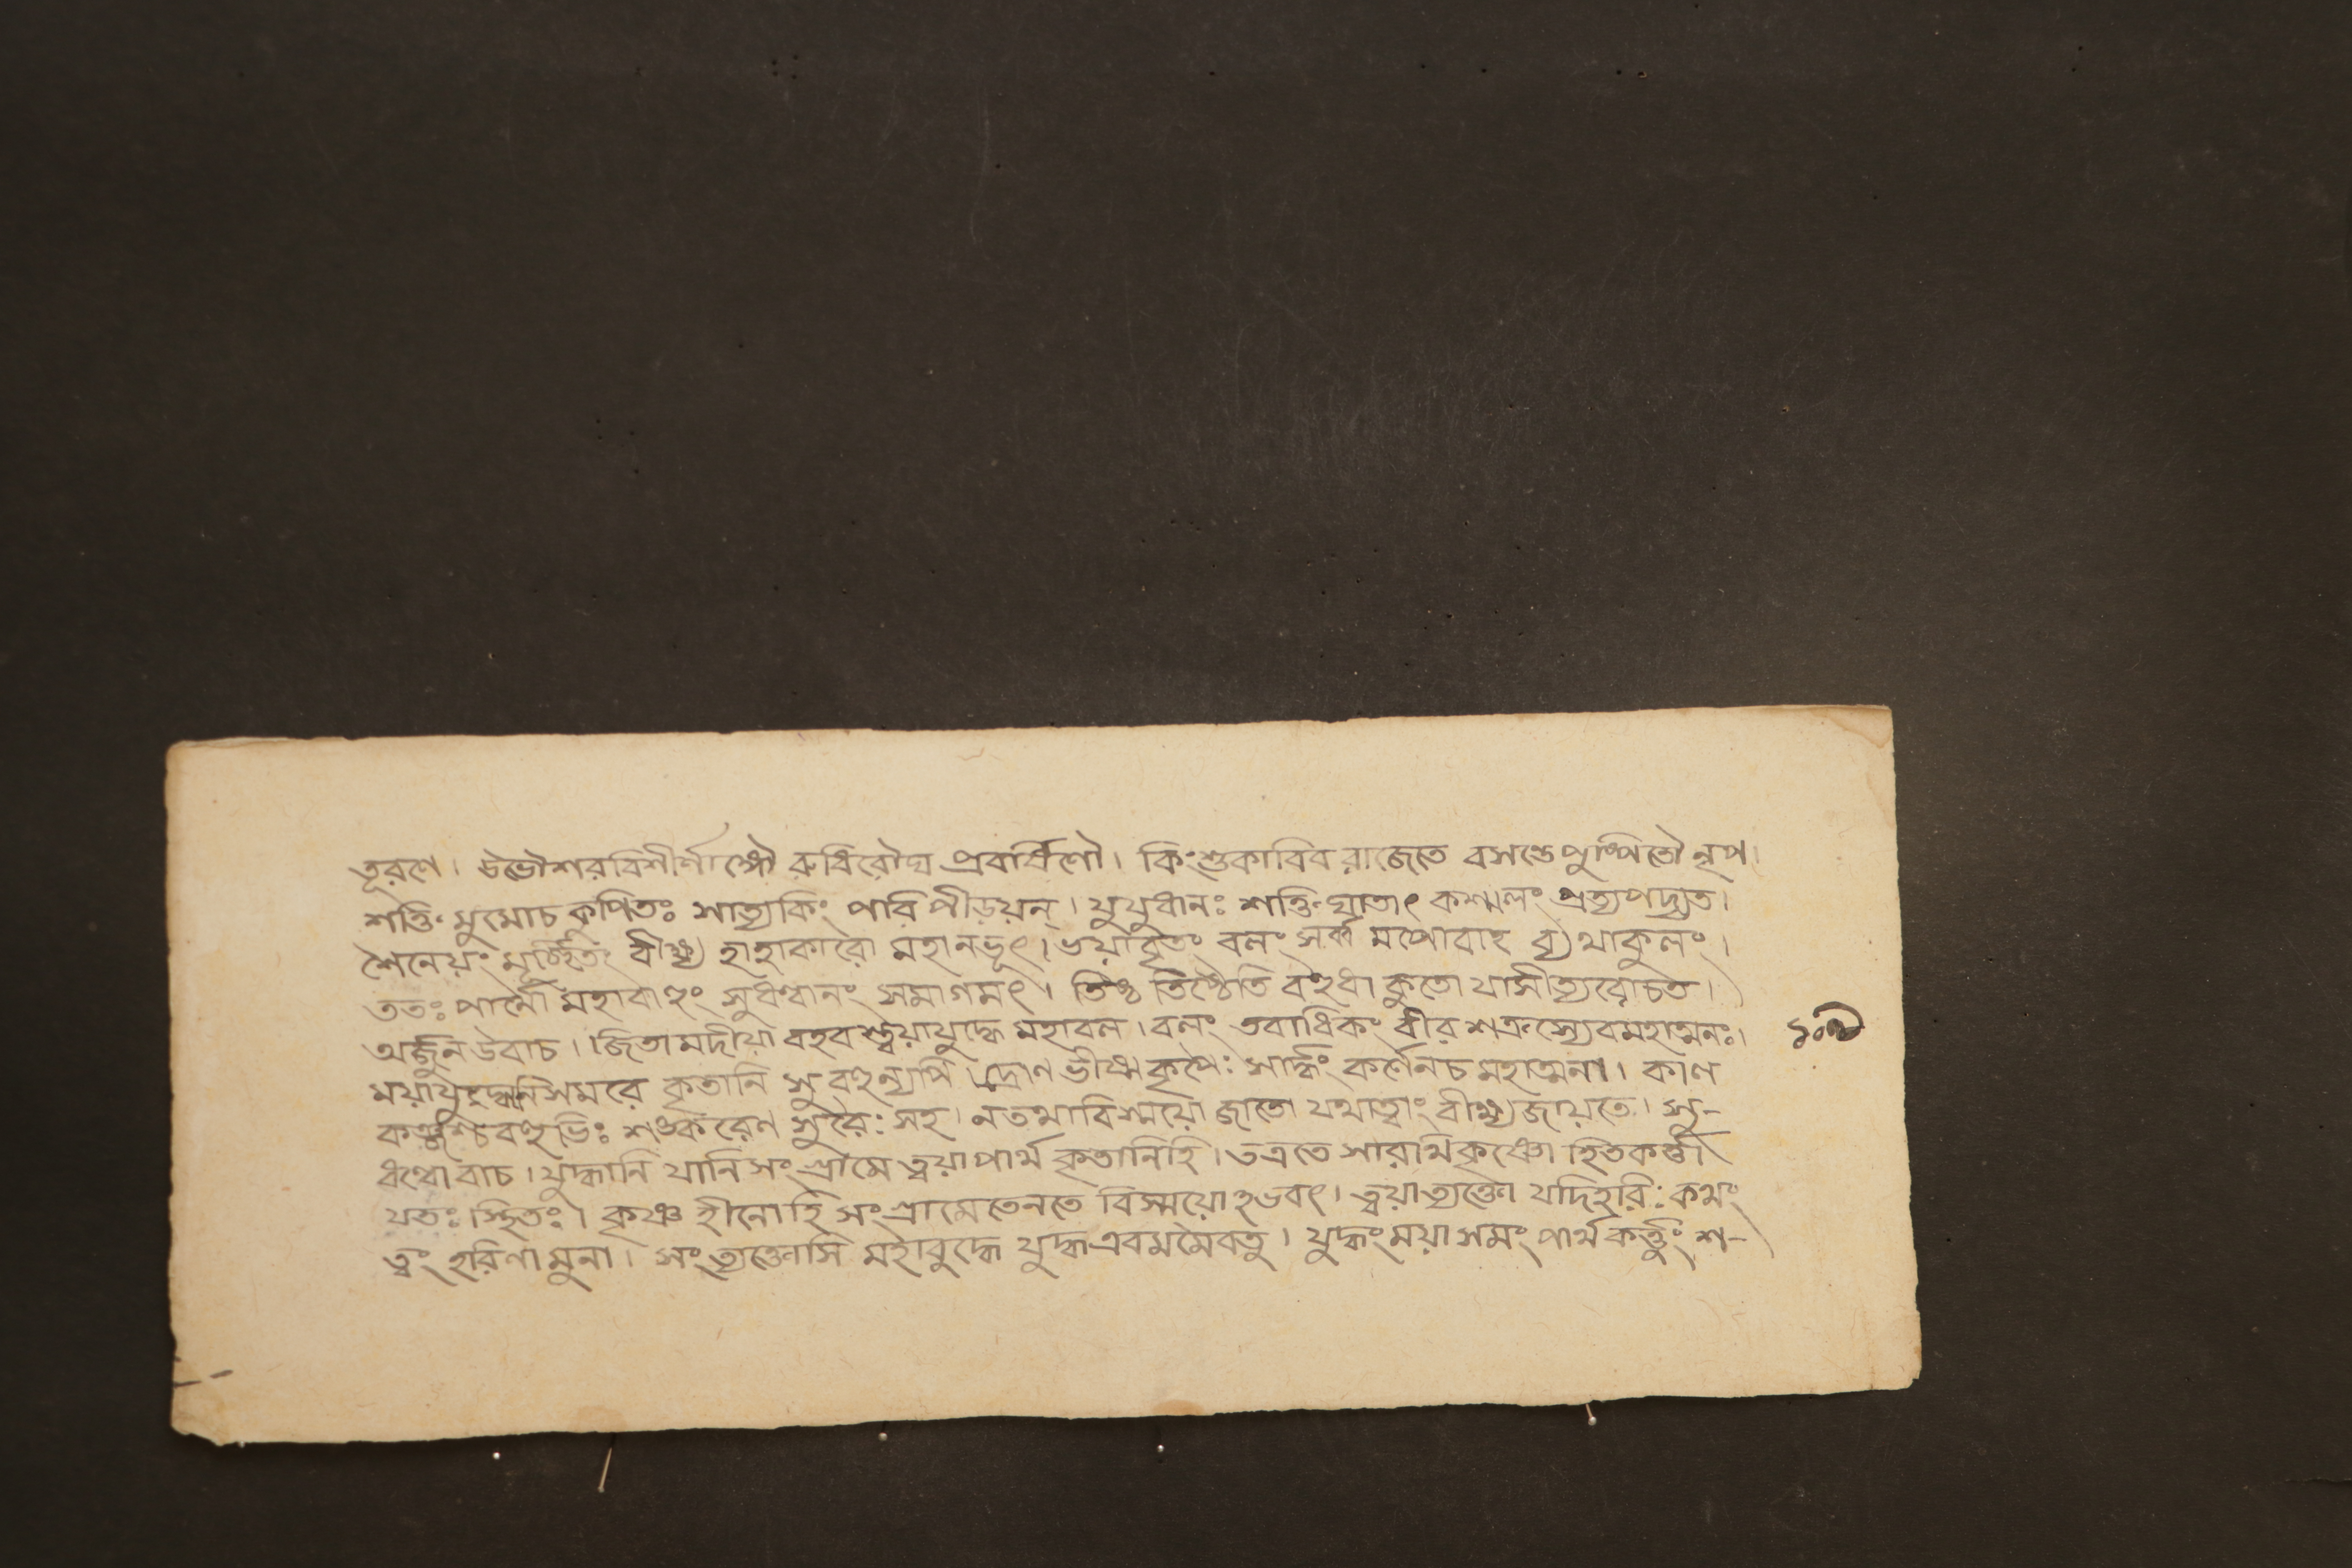 তূরণে। উভৌশরবিশীর্ণাঙ্গৌ রুধিরৌঘ প্রবর্ষিণৌ। কিংশুকাবিব রাজেতে বসন্তে পুষ্পিতৌ নৃপ।
শক্তিং মুমোচ কুপিতঃ সাত্যকিং পরিপীড়য়ন্। যুযুধানঃ শক্তিঘাতাৎ কশ্মলং প্রত্যপদ্যত।
শৈনেয়ং মূর্চ্ছিতং বীক্ষ্য হাহাকারো মহানভূৎ। ভয়াবৃতং বলং সর্ব্ব মপোবাহ ব্যথাকুলং।
ততঃ পার্থো মহাবাহুং সুধন্বানং সমাগমৎ। তিষ্ঠ তিষ্ঠেতি বহুধা কুতো যাসীত্যবোচত।
অর্জ্জুন উবাচ। জিতা মদীয়া বহবস্ত্বয়াযুদ্ধে মহাবল। বলং তবাধিকং বীর শক্রস্যেবমহাত্মনঃ। ১০৩
ময়াযুদ্ধানিসমরে কৃতানি সুবহুন্যপি। দ্রোণ ভীষ্ম কৃপৈঃ সার্দ্ধং কর্ণেনচ মহাত্মনা। কাণ
কঞ্জৈশ্চ বহুভিঃ শঙ্করেণ সুরৈঃ সহ। নতথাবিস্ময়ো জাতো যথাত্বাং বীক্ষ্যজায়তে। সু-
ধন্বোবাচ। যুদ্ধানি যানিসংগ্রামে ত্বয়াপার্থ কৃতানিহি। তত্রতে সারথিকৃষ্ণো হিতকর্ত্তা
যতঃ স্থিতঃ। কৃষ্ণ হীনোহি সংগ্রামেতেনতে বিস্ময়োঽভবৎ। ত্বয়াত্যক্তো যদিহরিঃ কথং
ত্বং হরিণামুনা। সংত্যক্তোসি মহাবুদ্ধে যুদ্ধএবমমৈবতু। যুদ্ধংময়াসমং পার্থকর্ত্তুং শ-